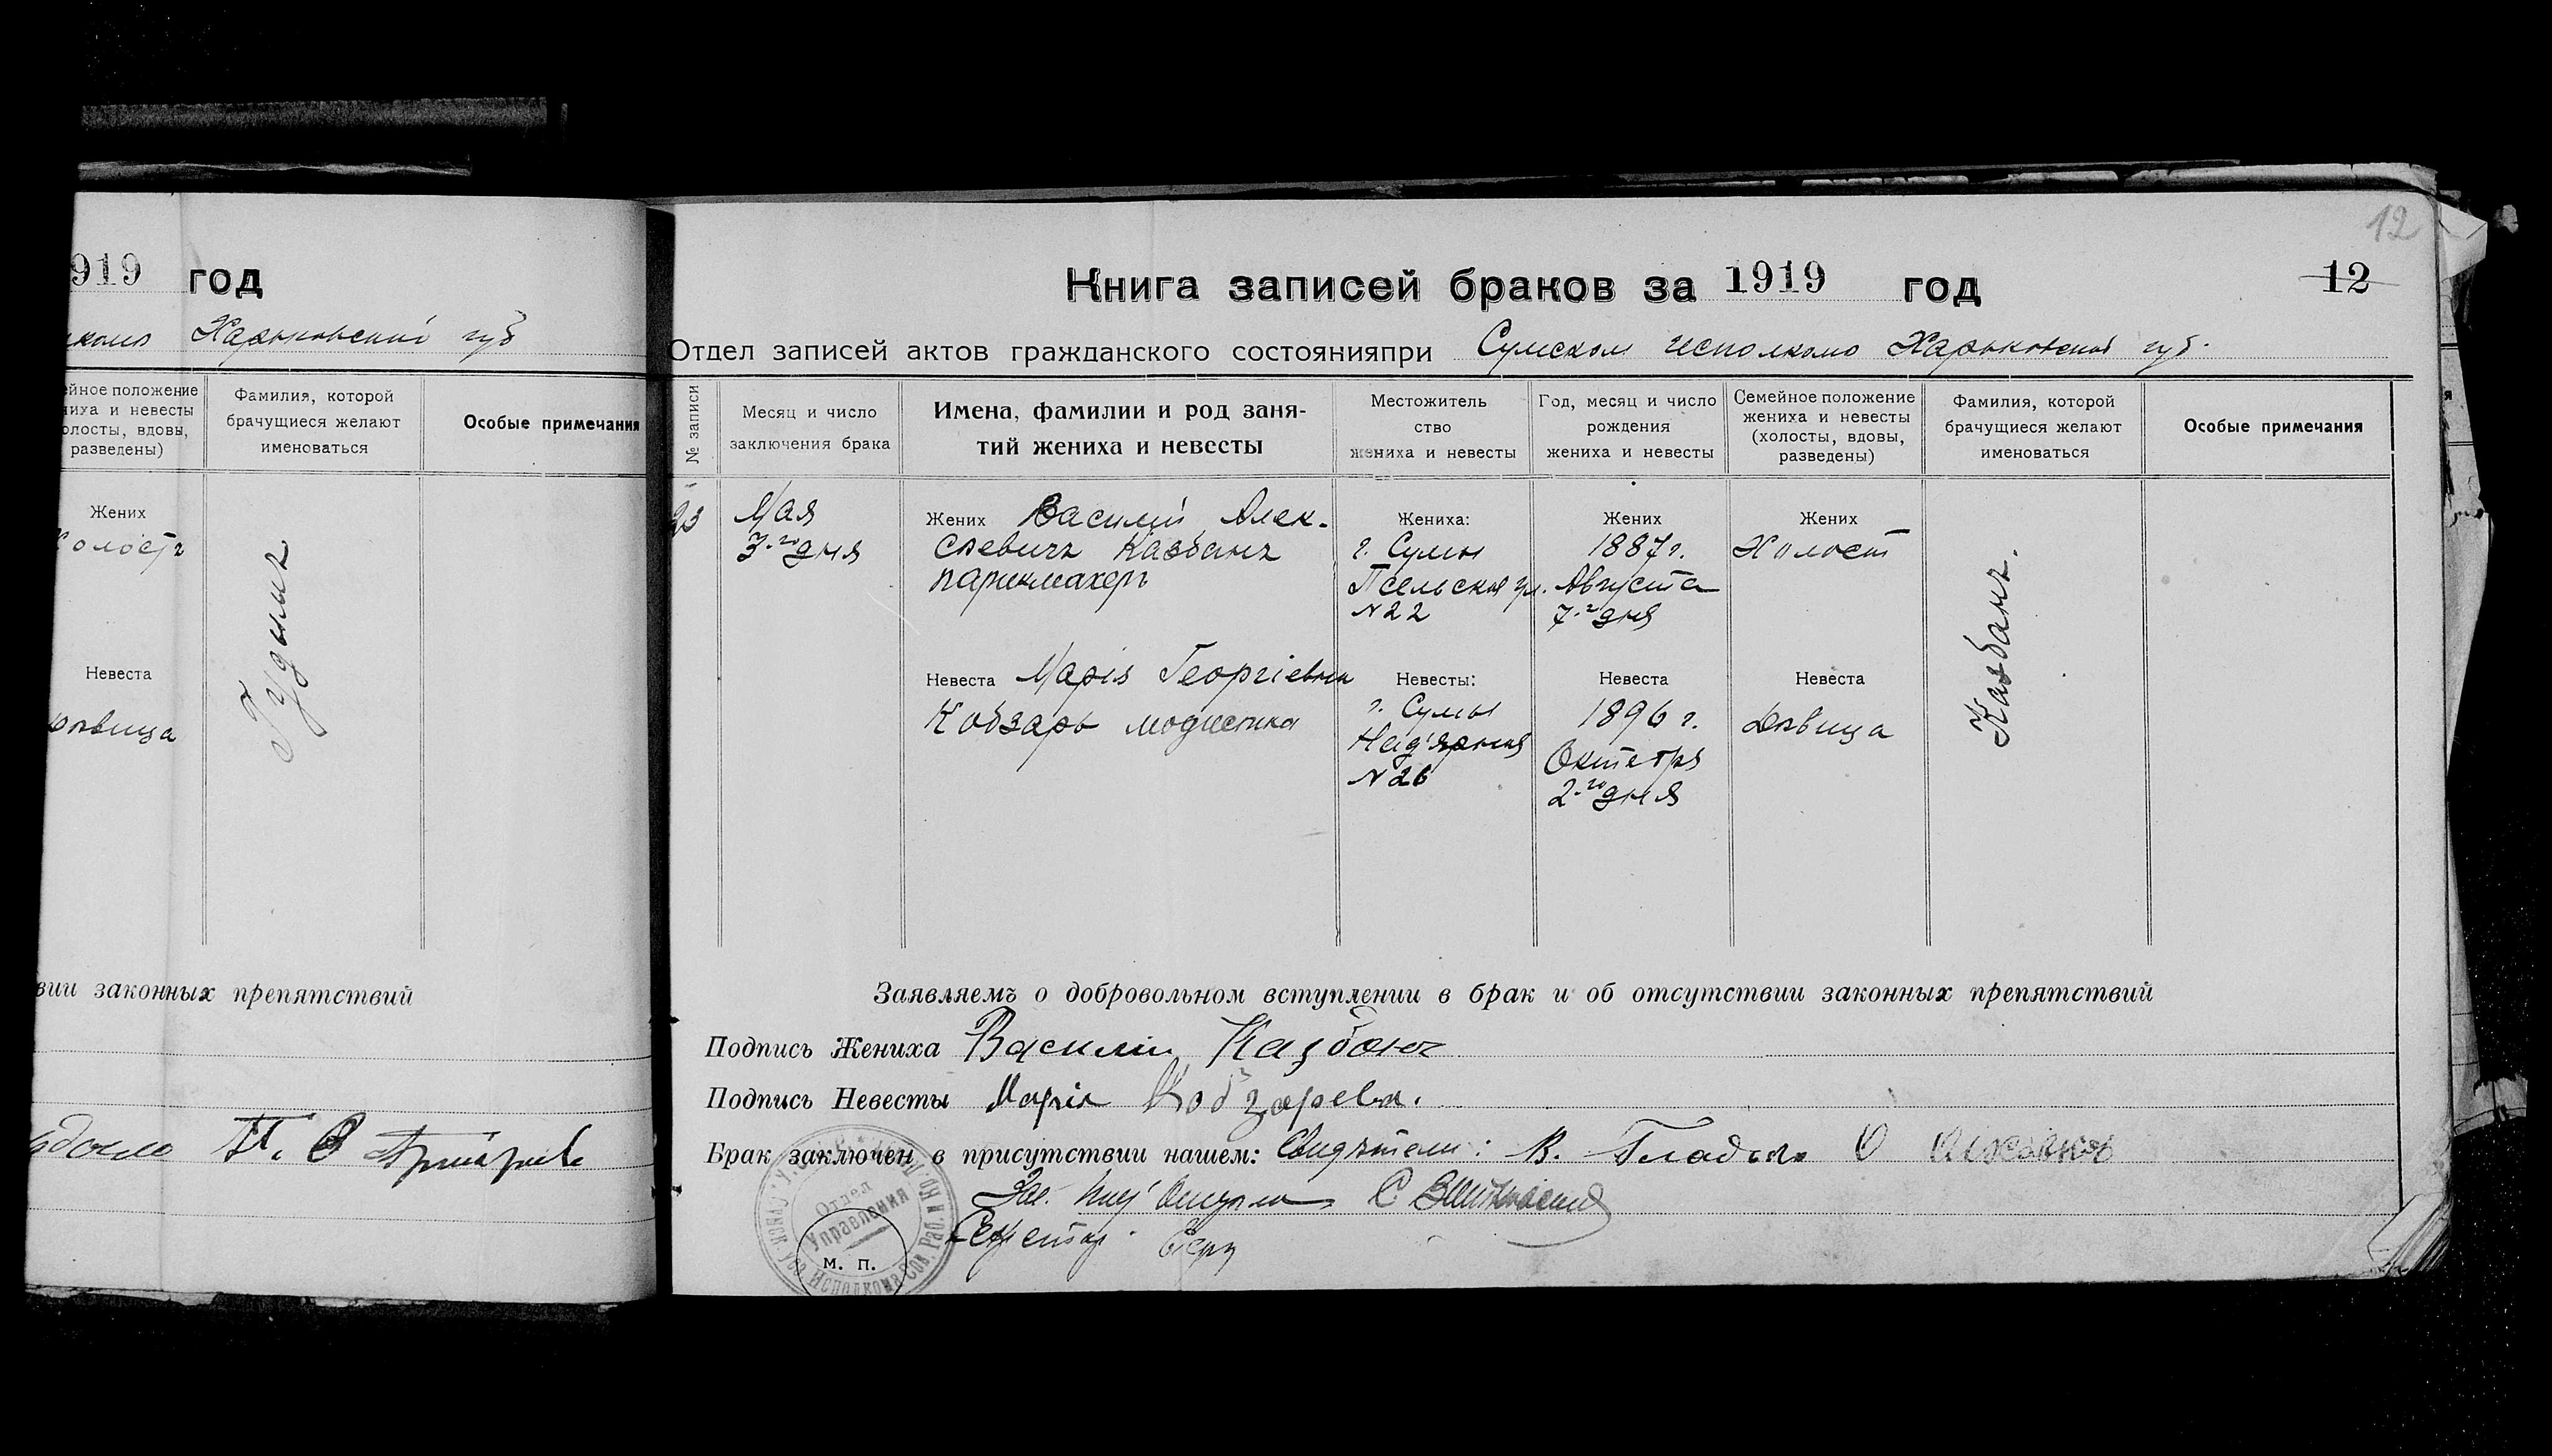 919 год
Харьковский губ
ейное положение
ниха и невесты
олосты, вдовы,
разведены)
Фамилия, которой
брачущиеся желают
именоваться
Особые примечания
Жених
Холостъ
Гудимъ
Невеста
Дѣвица
вии законных препятствий
12
Книга записей браков за 1919 год
12
Отдел записей актов гражданского состоянияпри Сумском исполкомо Харьковской губ.
№ записи
Месяц и число
заключения брака
Имена, фамилии и род заня-
тий жениха и невесты
Местожитель
ство
жениха и невесты
Год, месяц и число
рождения
жениха и невесты
Семейное положение
жениха и невесты
(холосты, вдовы,
разведены)
Фамилия, которой
брачущиеся желают
именоваться
Особые примечания
23
Мая
3-го дня
Жених Василий Алек-
сѣевичъ Казбанъ
парикмахеръ
Жениха:
г. Сумы
Псельская ул.
N 22
Жених
1887 г.
Августа
7-го дня
Жених
Холост
Казбанъ.
Невеста Марія Георгіевна
Кобзарь модистка
Невесты:
г. Сумы
N 26
Невеста
1896 г.
Октября
2-го дня
Невеста
Дѣвица
Заявляемъ о добровольном вступлении в брак и об отсутствии законных препятствий
Подпись Жениха Василій Казбанъ
Подпись Невесты Марія Кобзарева.
Брак заключен в присутствии нашем: Свидѣтели: В. О
Зав. С
Секретар
Отдел
Управления
Исполкома Сов. Раб.
м. п.